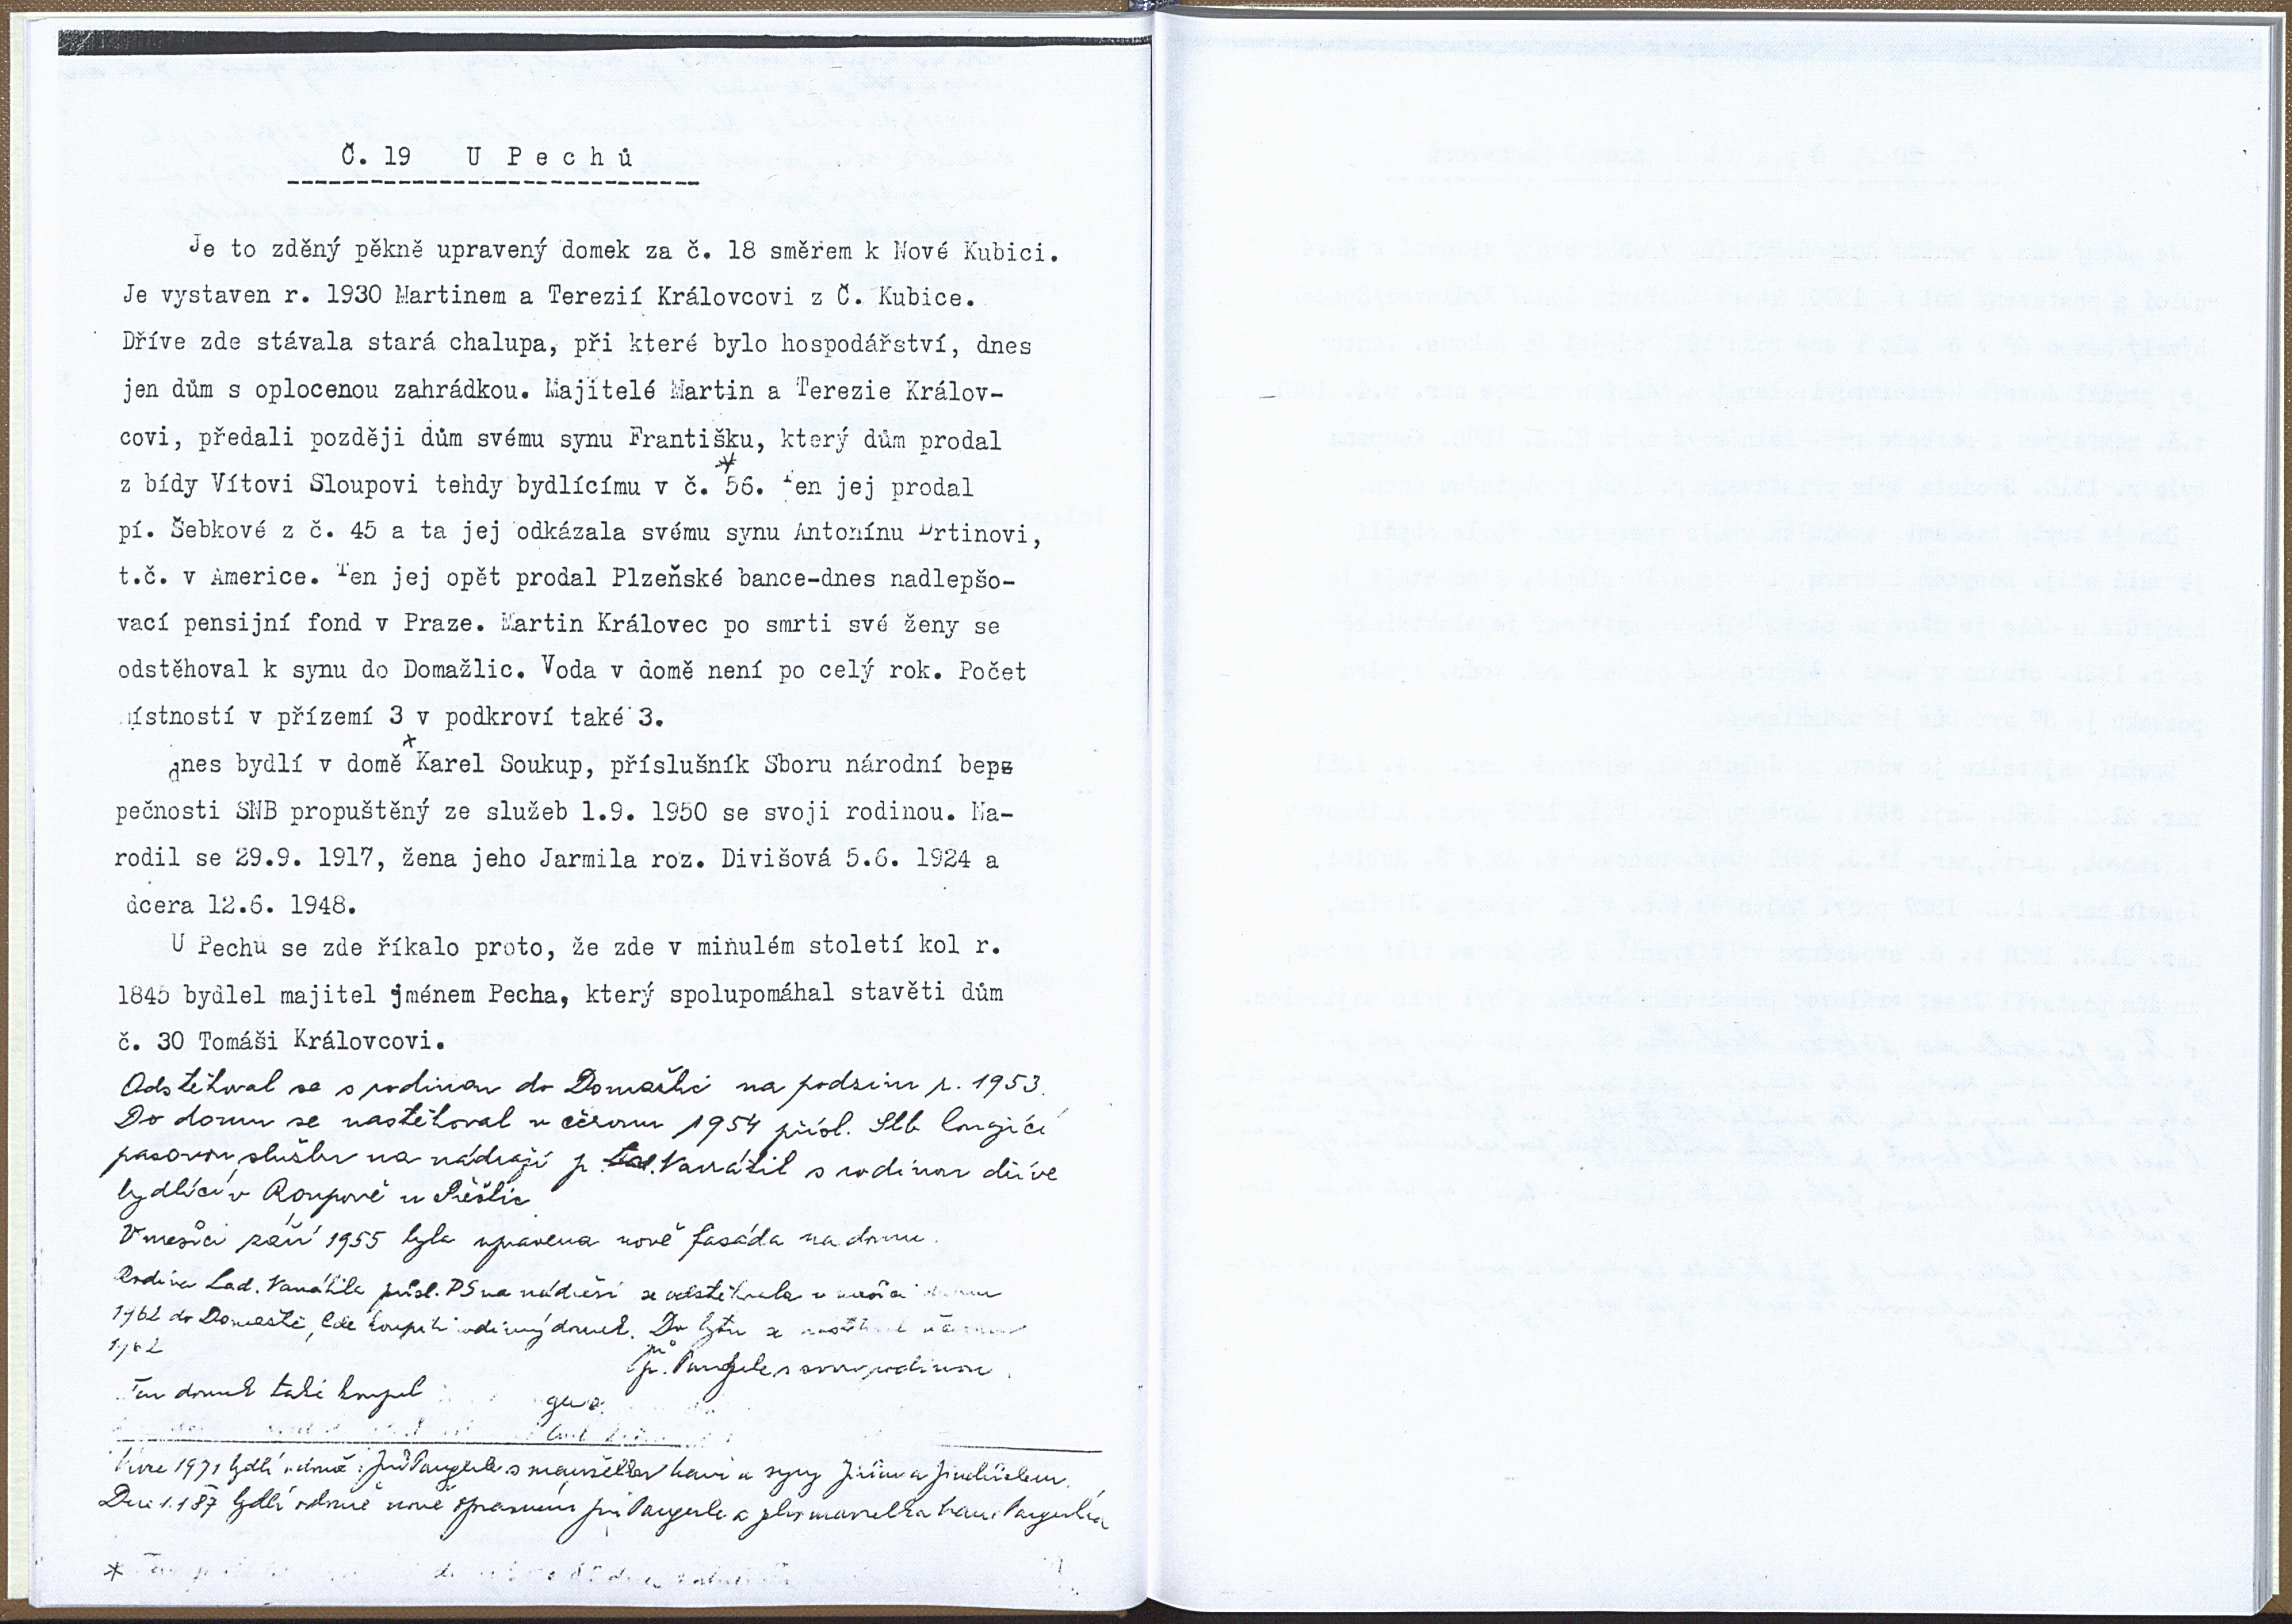 Č. 19 U Pechů
Je to zděný pěkně upravený domek za č. 18 směrem k Nové Kubici.
Je vystaven r. 1930 Martinem a Terezií Královcovi z Č. Kubice.
Dříve zde stávala stará chalupa, při které bylo hospodářství, dnes
jen dům s oplocenou zahrádkou. Majitelé Martin a Terezie Králov-
covi, předali později dům svému synu Františku, který dům prodal
z bídy Vítovi Sloupovi tehdy bydlícímu v č. *56. Ten jej prodal
pí. Šebkové z č. 45 a ta jej odkázala svému synu Antonínu Drtinovi,
t.č. v Americe. Ten jej opět prodal Plzeňské bance-dnes nadlepšo-
vací pensijní fond v Praze. Martin Královec po smrti své ženy se
odstěhoval k synu do Domažlic. Voda v domě není po celý rok. Počet
místností v přízemí 3 v podkroví také 3.
dnes bydlí v domě *Karel Soukup, příslušník Sboru národní bepz
pečnosti SNB propuštěný ze služeb 1.9. 1950 se svoji rodinou. Na-
rodil se 29.9. 1917, žena jeho Jarmila roz. Divišová 5.6. 1924 a
dcera 12.6. 1948.
U Pechu se zde říkalo proto, že zde v minulém století kol r.
1845 bydlel majitel jménem Pecha, který spolupomáhal stavěti dům
č. 30 Tomáši Královcovi.
Odstěhoval se s rodinou do Domažlic na podzim r. 1953.
Do domu se nastěhoval v červnu 1954 přísl. konající
pasovou službu na nádraží p. Navrátil s rodinou dříve
bydlící v Roupově u Přeštic
V měsíci září 1955 byla upravena nově fasáda na domu.
Rodina Lad. Navrátila přísl. PS na nádraží se odstěhovala v měsíci
1962 do Domažlic, kde koupili rodinný domek. Do bytu se nastěhoval
1962
p. Pangerle s svou rodinou.
Ten domek také koupil
V roce 1971 bydlí v domě Jiří Pangerle s manželkou a syny Jiřím a Jindřichem.
Dne 1.1 87 bydlí v domě nově Jiří Pangerle a manželka
*